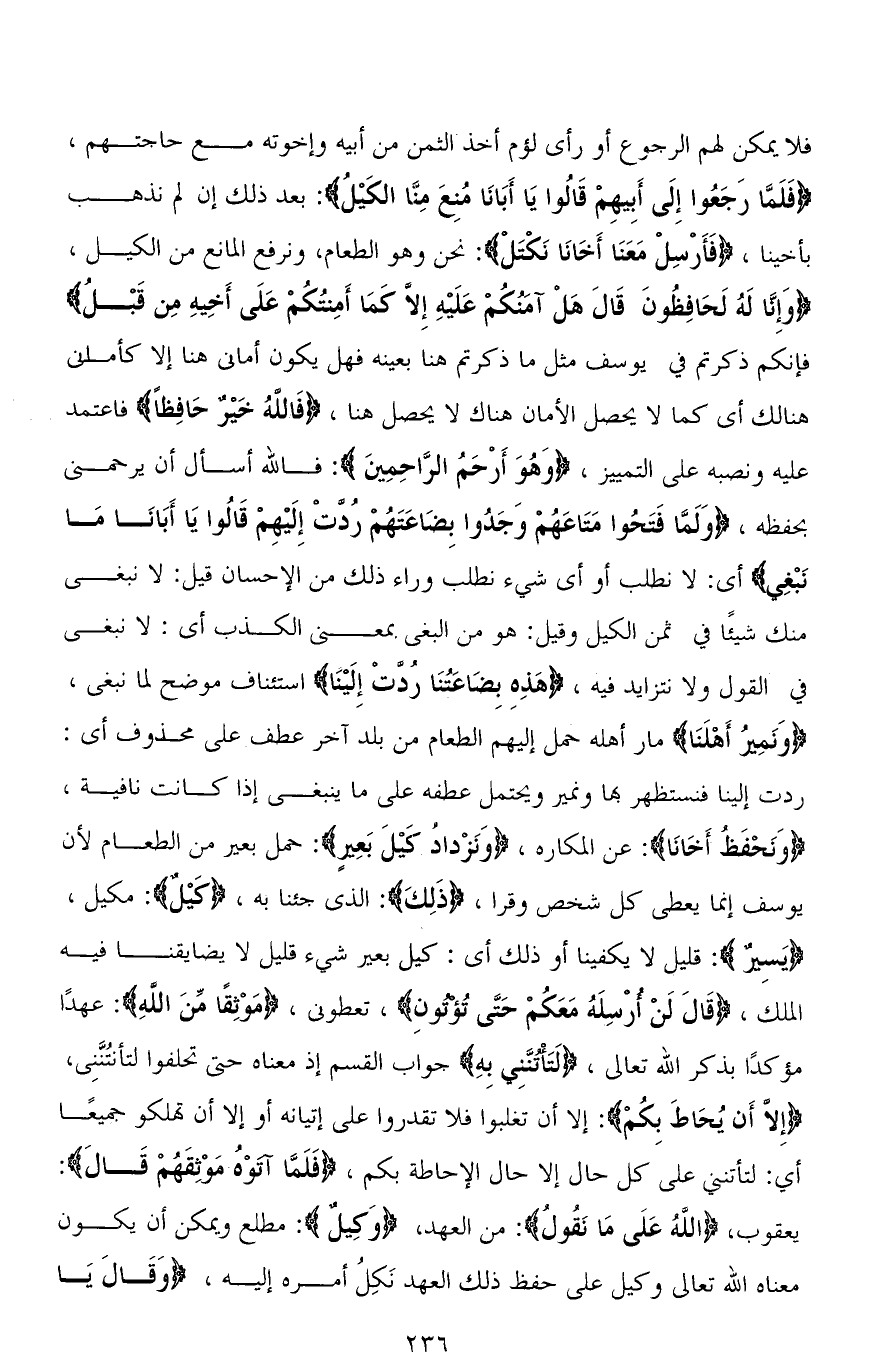 فلا يمكن لهم الرجوع أو رأى لؤم أخذ الثمن من أبيه وإخوته مـع حاجتـهم ،
﴿فَلَمَّا رَجَعُوا إِلَى أَبِيهِمْ قَالُوا يَا أَبَانَا مُنِعَ مِنَّا الكَيْلُ﴾: بعد ذلك إن لم نذهـب
بأخينا ، ﴿فَأَرْسِلْ مَعَنَا أَخَانَا نَكْتَلْ﴾: نحن وهو الطعام، ونرفع المانع من الكيـل ،
﴿وَإِنَّا لَهُ لَحَافِظُونَ قَالَ هَلْ آمَنُكُمْ عَلَيْهِ إِلاَّ كَمَا أَمِنتُكُمْ عَلَى أَخِيهِ مِن قَبْـلُ﴾
فإنكم ذكرتم في يوسف مثل ما ذكرتم هنا بعينه فهل يكون أمانى هنا إلا كأمـانى
هنالك أى كما لا يحصل الأمان هناك لا يحصل هنا ، ﴿فَاللَّهُ خَيْرٌ حَافِظاً﴾ فاعتمد
عليه ونصبه على التمييز ، ﴿وَهُوَ أَرْحَمُ الرَّاحِمِينَ ﴾: فـالله أسـأل أن يرحمـنى
بحفظه ، ﴿وَلَمَّا فَتَحُوا مَتَاعَهُمْ وَجَدُوا بِضَاعَتَهُمْ رُدَّتْ إِلَيْهِمْ قَالُوا يَا أَبَانَـا مَـا
نَبْغِي﴾ أى: لا نطلب أو أى شيء نطلب وراء ذلك من الإحسان قيل: لا نبغـى
منك شيئًا في ثمن الكيل وقيل: هو من البغى بمعـنى الكـذب أى : لا نبغـى
في القول ولا نتزايد فيه ، ﴿هَذِهِ بِضَاعَتُنَا رُدَّتْ إِلَيْنَا﴾ استئناف موضح لما نبغى ،
﴿وَنَمِيرُ أَهْلَنَا﴾ مار أهله حمل إليهم الطعام من بلد آخر عطف على محـذوف أى :
ردت إلينا فنستظهر بها ونمير ويحتمل عطفه على ما ينبغـى إذا كـانت نافيـة ،
﴿وَنَحْفَظُ أَخَانَا﴾: عن المكاره ، ﴿وَنَزْدادُ كَيْلَ بَعِيرٍ﴾: حمل بعير من الطعـام لأن
يوسف إنما يعطى كل شخص وقرا ، ﴿ذَلِكَ﴾: الذى جئنا به ، ﴿كَيْلٌ﴾: مكيل ،
﴿يَسِيرٌ ﴾: قليل لا يكفينا أو ذلك أى : كيل بعير شيء قليل لا يضايقنـا فيـه
الملك ، ﴿قَالَ لَنْ أُرْسِلَهُ مَعَكُمْ حَتَّى تُؤْتُونِ﴾ ، تعطونى ، ﴿مَوْثِقًا مِّنَ اللَّهِ﴾: عهدًا
مؤكدًا بذكر الله تعالى ، ﴿لَتَأْتُنَّنِي بِهِ﴾ جواب القسم إذ معناه حتى تحلفوا لتأنتُنَّنى،
﴿إِلاَّ أَن يُحَاطَ بِكُمْ﴾: إلا أن تغلبوا فلا تقدروا على إتيانه أو إلا أن تهلكو جميعًـا
أي: لتأتنني على كل حال إلا حال الإحاطة بكم ، ﴿فَلَمَّا آتَوْهُ مَوْثِقَهُمْ قَـالَ﴾:
يعقوب، ﴿اللَّهُ عَلَى مَا نَقُولُ﴾: من العهد، ﴿وَكِيلٌ ﴾: مطلع ويمكن أن يكـون
معناه الله تعالى وكيل على حفظ ذلك العهد نَكِلُ أمـره إليـه ، ﴿وَقَـالَ يَـا
٢٣٦